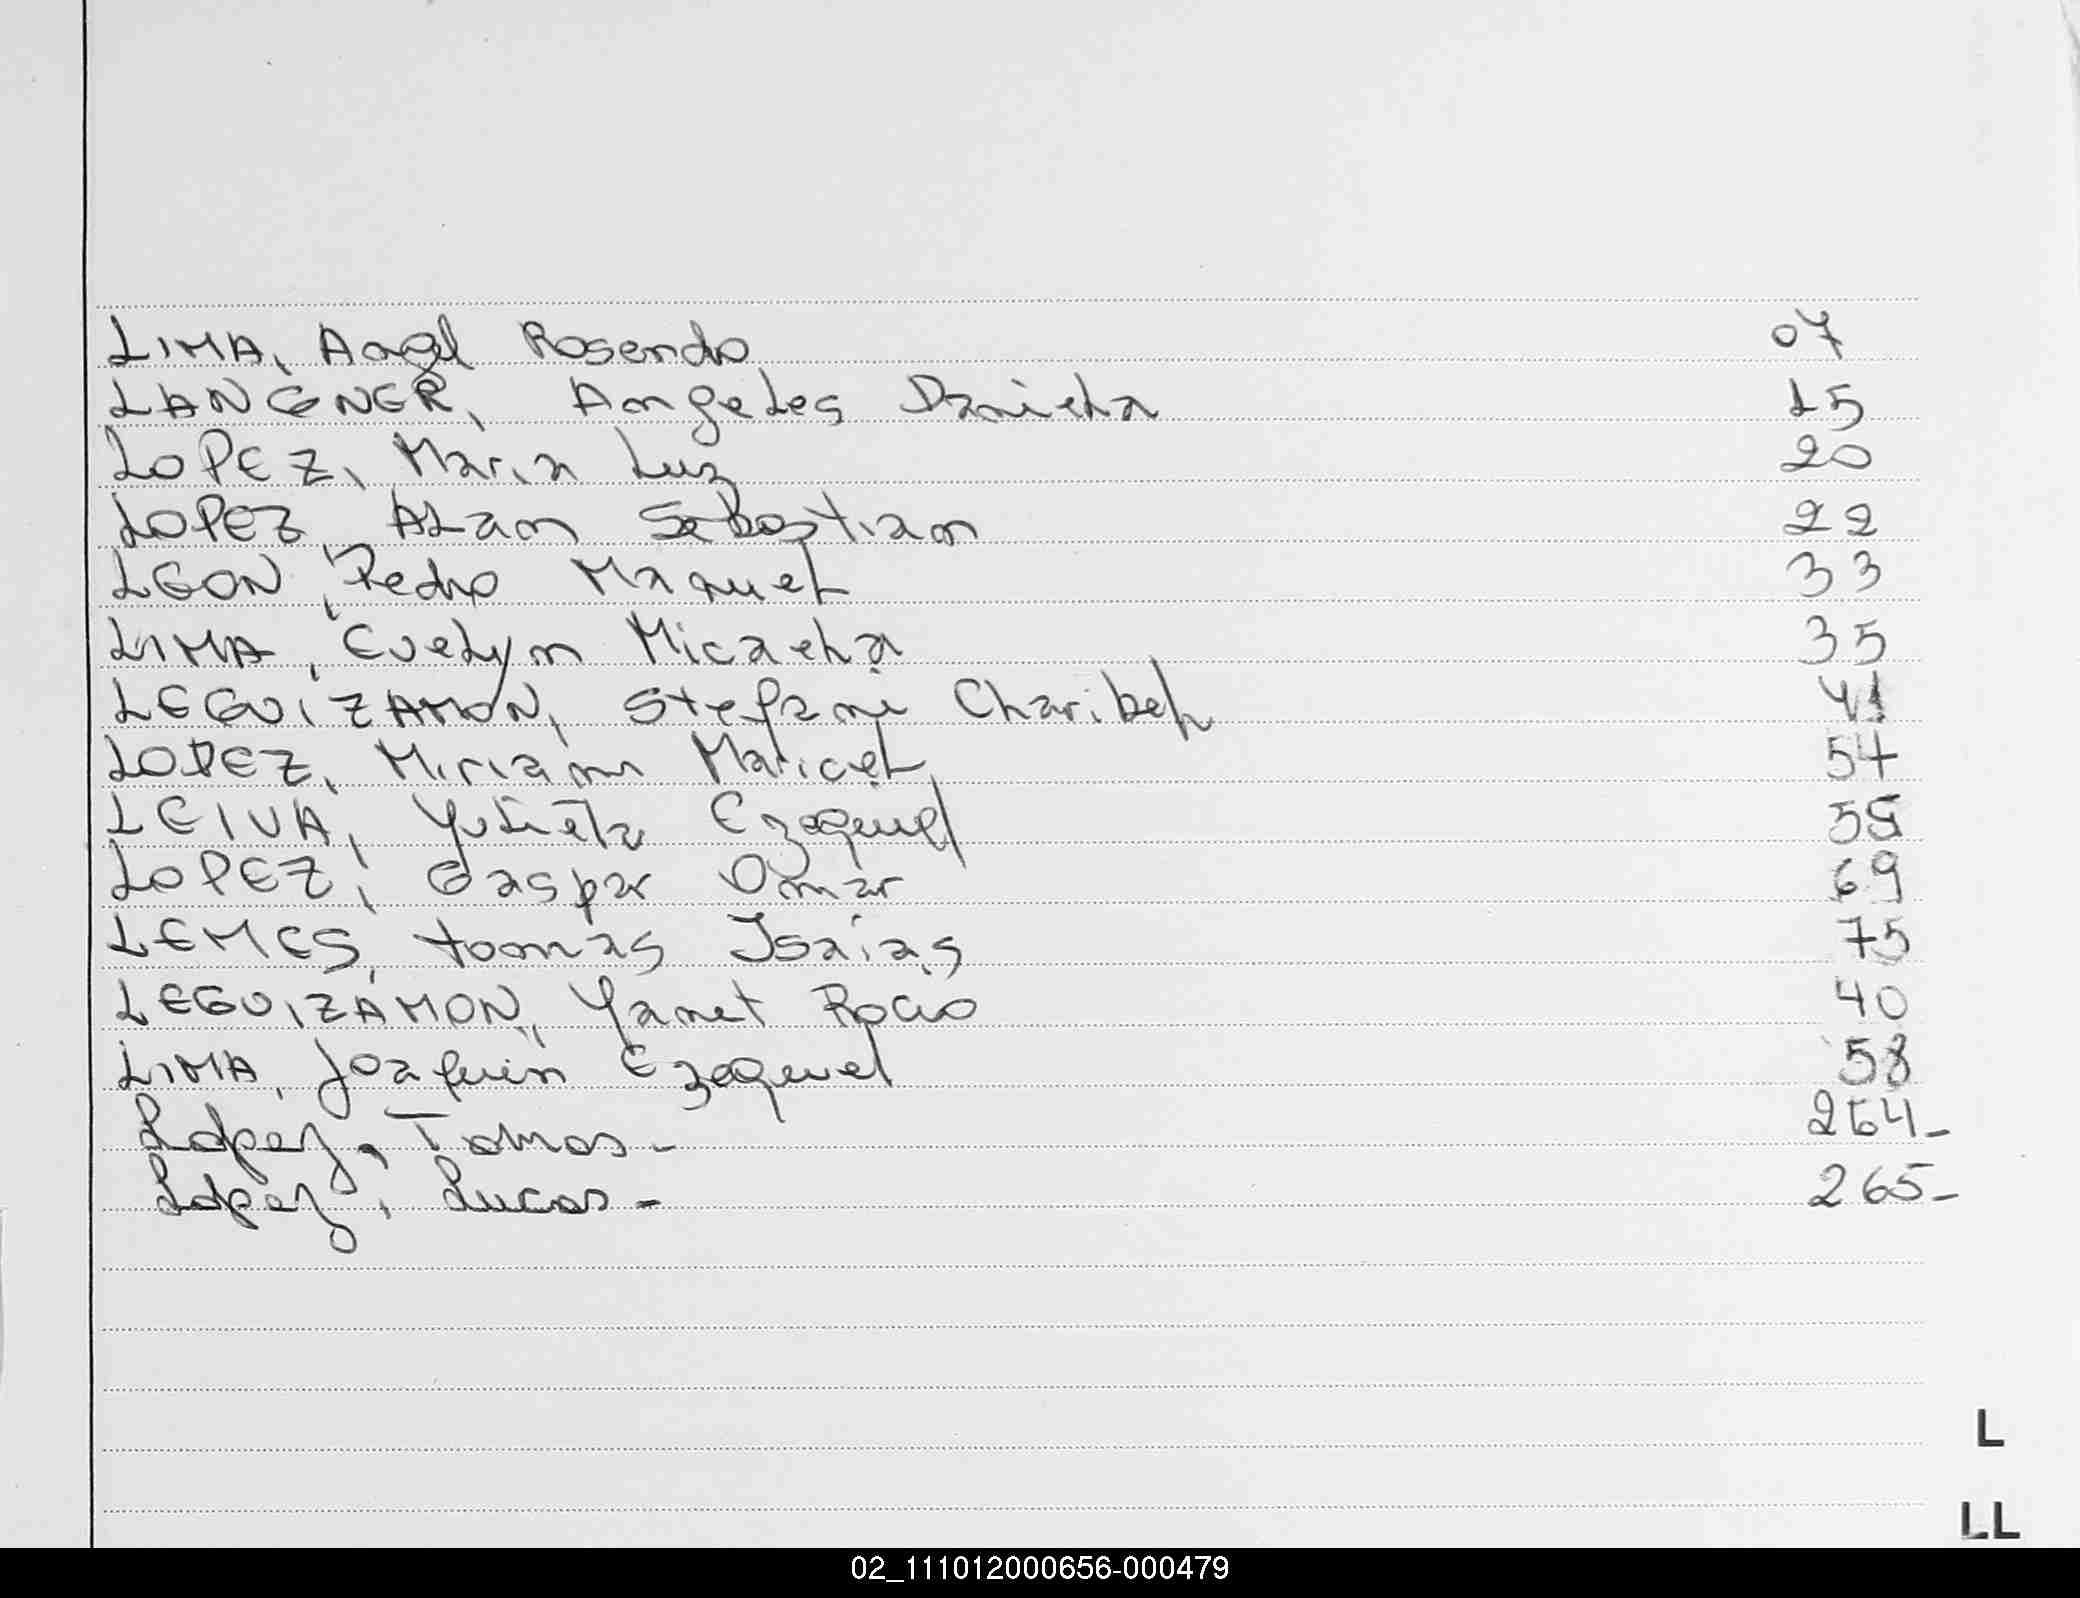 LIMA, Angel Rosendo 07
LANGNER, Angeles Daniela 15
LOPEZ, Maria Luz 20
LOPEZ, ALan Sebastian 22
LEON, Pedro Manuel 33
LIMA, Evelyn Micaela 35
LEGUIZAMON, Stefani Charibeh 41
LOPEZ, Miriam Maricel 54
LEIVA, Ezequiel
LOPEZ, Gaspar Omar 69
LEMES, tomas Isaias 75
LEGUIZAMON, Yanet Rocio 40
LIMA, Joaquin Ezequiel 58
Lopez, Tomas - 264-
Lopez, Lucas - 265-
L
LL
02_111012000656-000479